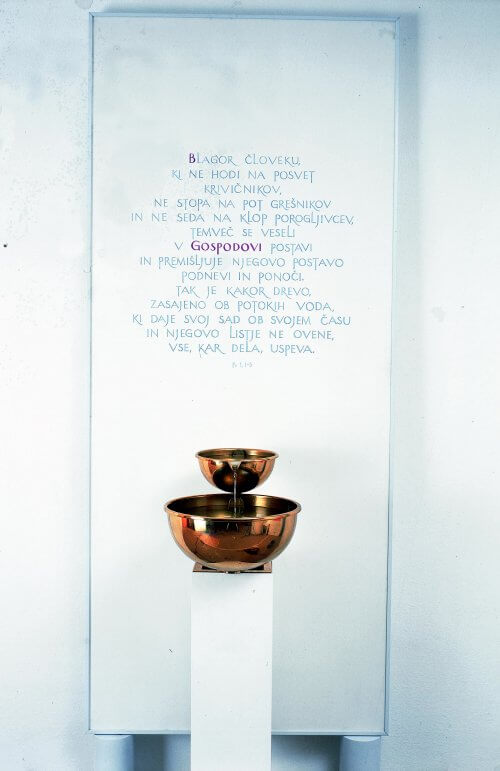 BLAGOR ČLOVEKU,
KI NE HODI NA POSVET
KRIVIČNIKOV,
NE STOPA NA POT GREŠNIKOV
IN NE SEDA NA KLOP POROGLJIVCEV,
TEMVEČ SE VESELI
V GOSPODOVI POSTAVI
IN PREMIŠLJUJE NJEGOVO POSTAVO
PODNEVI IN PONOČI.
TAK JE KAKOR DREVO,
ZASAJENO OB POTOKIH VODA,
KI DAJE SVOJ SAD OB SVOJEM ČASU
IN NJEGOVO LISTJE NE OVENE,
VSE, KAR DELA, USPEVA.